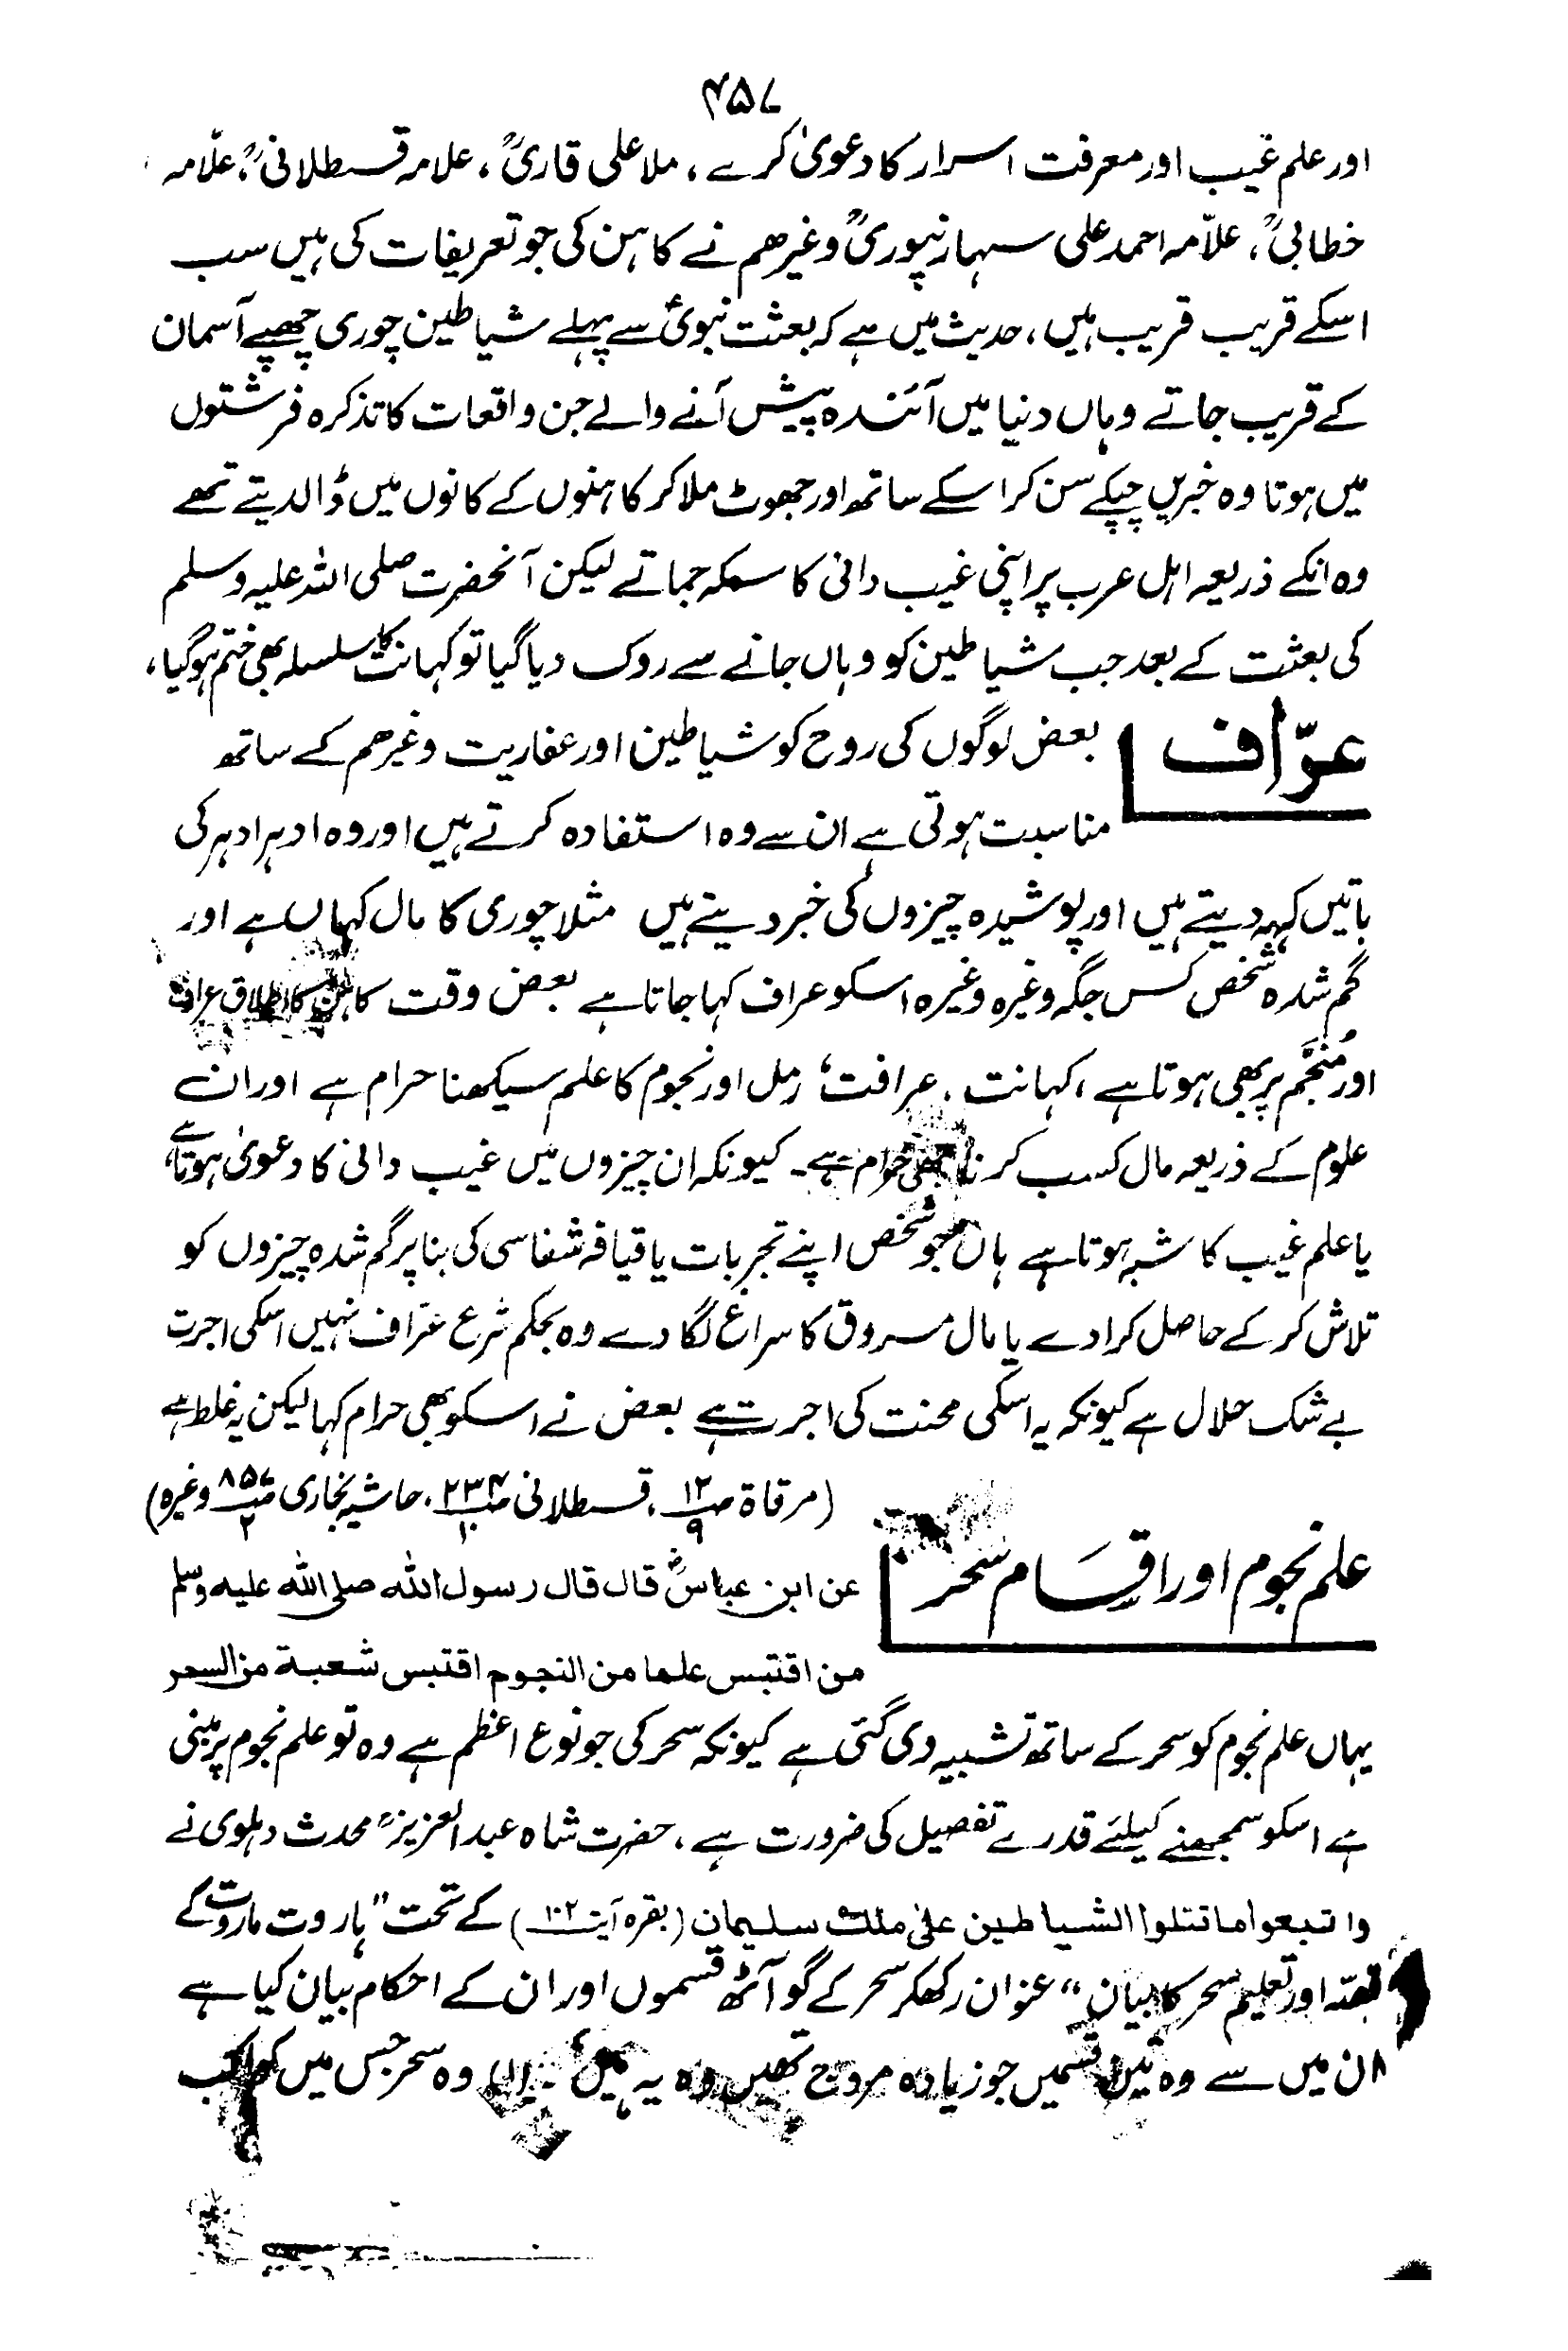 ۴۵۷
اور علم غیب اور معرفت اسرار کا دعویٰ کرے ، ملا علی قاریؒ ، علامہ قسطلانیؒ ، علّامہ
خطابیؒ ، علّامہ احمد علی سہارنپوریؒ وغیرھم نے کاہن کی جو تعریفات کی ہیں سب
اسکے قریب قریب ہیں ، حدیث میں ہے کہ بعثت نبویؐ سے پہلے شیاطین چوری چھپے آسمان
کے قریب جاتے وہاں دنیا میں آئندہ پیش آنے والے جن واقعات کا تذکرہ فرشتوں
میں ہوتا وہ خبریں چپکے سن کر اسکے ساتھ اور جھوٹ ملا کر کاہنوں کے کانوں میں ڈالدیتے تھے
وہ انکے ذریعہ اہل عرب پر اپنی غیب دانی کا سکہ جماتے لیکن آنحضرت صلی اللہ علیہ وسلم
کی بعثت کے بعد جب شیاطین کو وہاں جانے سے روک دیا گیا تو کہانت کا سلسلہ بھی ختم ہوگیا ،
عرّاف بعض لوگوں کی روح کو شیاطین اور عفاریت وغیرھم کے ساتھ
مناسبت ہوتی ہے ان سے وہ استفادہ کرتے ہیں اور وہ ادہر ادہر کی
باتیں کہہ دیتے ہیں اور پوشیدہ چیزوں کی خبر دیتے ہیں مثلا چوری کا مال کہاں ہے اور
گم شدہ شخص کس جگہ وغیرہ وغیرہ اسکو عراف کہا جاتا ہے بعض وقت کاہن کا اطلاق عراف
اور مُنَجَّم پر بھی ہوتا ہے ، کہانت ، عرافت ، رمل اور نجوم کا علم سیکھنا حرام ہے اور ان
علوم کے ذریعہ مال کسب کرنا بھی حرام ہے۔ کیونکہ ان چیزوں میں غیب دانی کا دعویٰ ہوتا ہے ،
یا علم غیب کا شبہ ہوتا ہے ہاں جو شخص اپنے تجربات یا قیافہ شفاسی کی بنا پر گم شدہ چیزوں کو
تلاش کر کے حاصل کرا دے یا مال مسروق کا سراغ لگا دے وہ بحکم شرع عرّاف نہیں اسکی اجرت
بے شک حلال ہے کیونکہ یہ اسکی محنت کی اجرت ہے بعض نے اسکو بھی حرام کہا لیکن یہ غلط ہے
(مرقاۃ ص۱۲ ۹ ، قسطلانی ص۲۳۴ ۱۰ ، حاشیہ بخاری ص۸۵۷ ۲ وغیرہ)
علم نجوم اور اقسَام سحر عن ابن عباسؓ قال قال رسول اللہ صلی اللہ علیہ وسلم
من اقتبس علما من النجوم اقتبس شعبة من السحر
یہاں علم نجوم کو سحر کے ساتھ تشبیہ دی گئی ہے کیونکہ سحر کی جو نوع اعظم ہے وہ تو علم نجوم پر مبنی
ہے اسکو سمجھنے کیلئے قدرے تفصیل کی ضرورت ہے ، حضرت شاہ عبد العزیزؒ محدث دہلوی نے
واتبعوا ما تتلوا الشیاطین علیٰ ملك سلیمان (بقرہ آیت ۱۰۲) کے تحت "ہاروت ماروت کے
قصّہ اور تعلیم سحر کا بیان" عنوان رکھکر سحر کے گو آٹھ قسموں اور ان کے احکام بیان کیا ہے
ان میں سے وہ تین قسمیں جو زیادہ مروج تھیں وہ یہ ہیں : (۱) وہ سحر جس میں کواکب